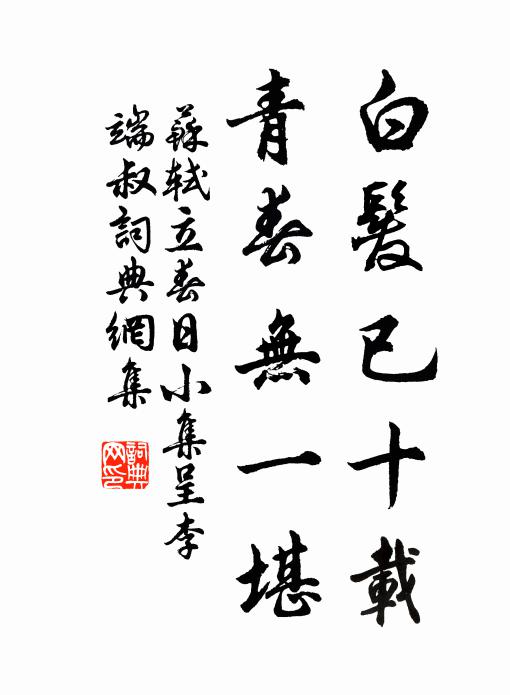 白髮已十載
青春無一堪
蘇軾立春日小集呈李
端叔詞典網集
詞典網印